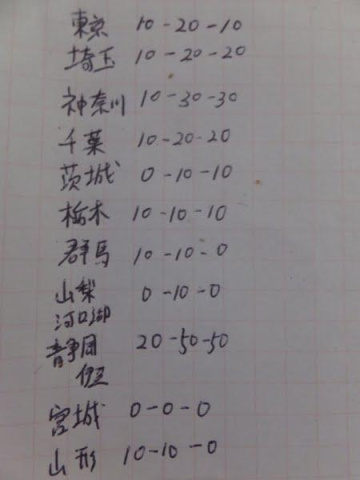 東京 10-20-10
埼玉 10-20-20
神奈川 10-30-30
千葉 10-20-20
茨城 0-10-10
栃木 10-10-10
群馬 10-10-0
山梨 0-10-0
河口湖
静岡 20-50-50
伊豆
宮城 0-0-0
山形 10-10-0